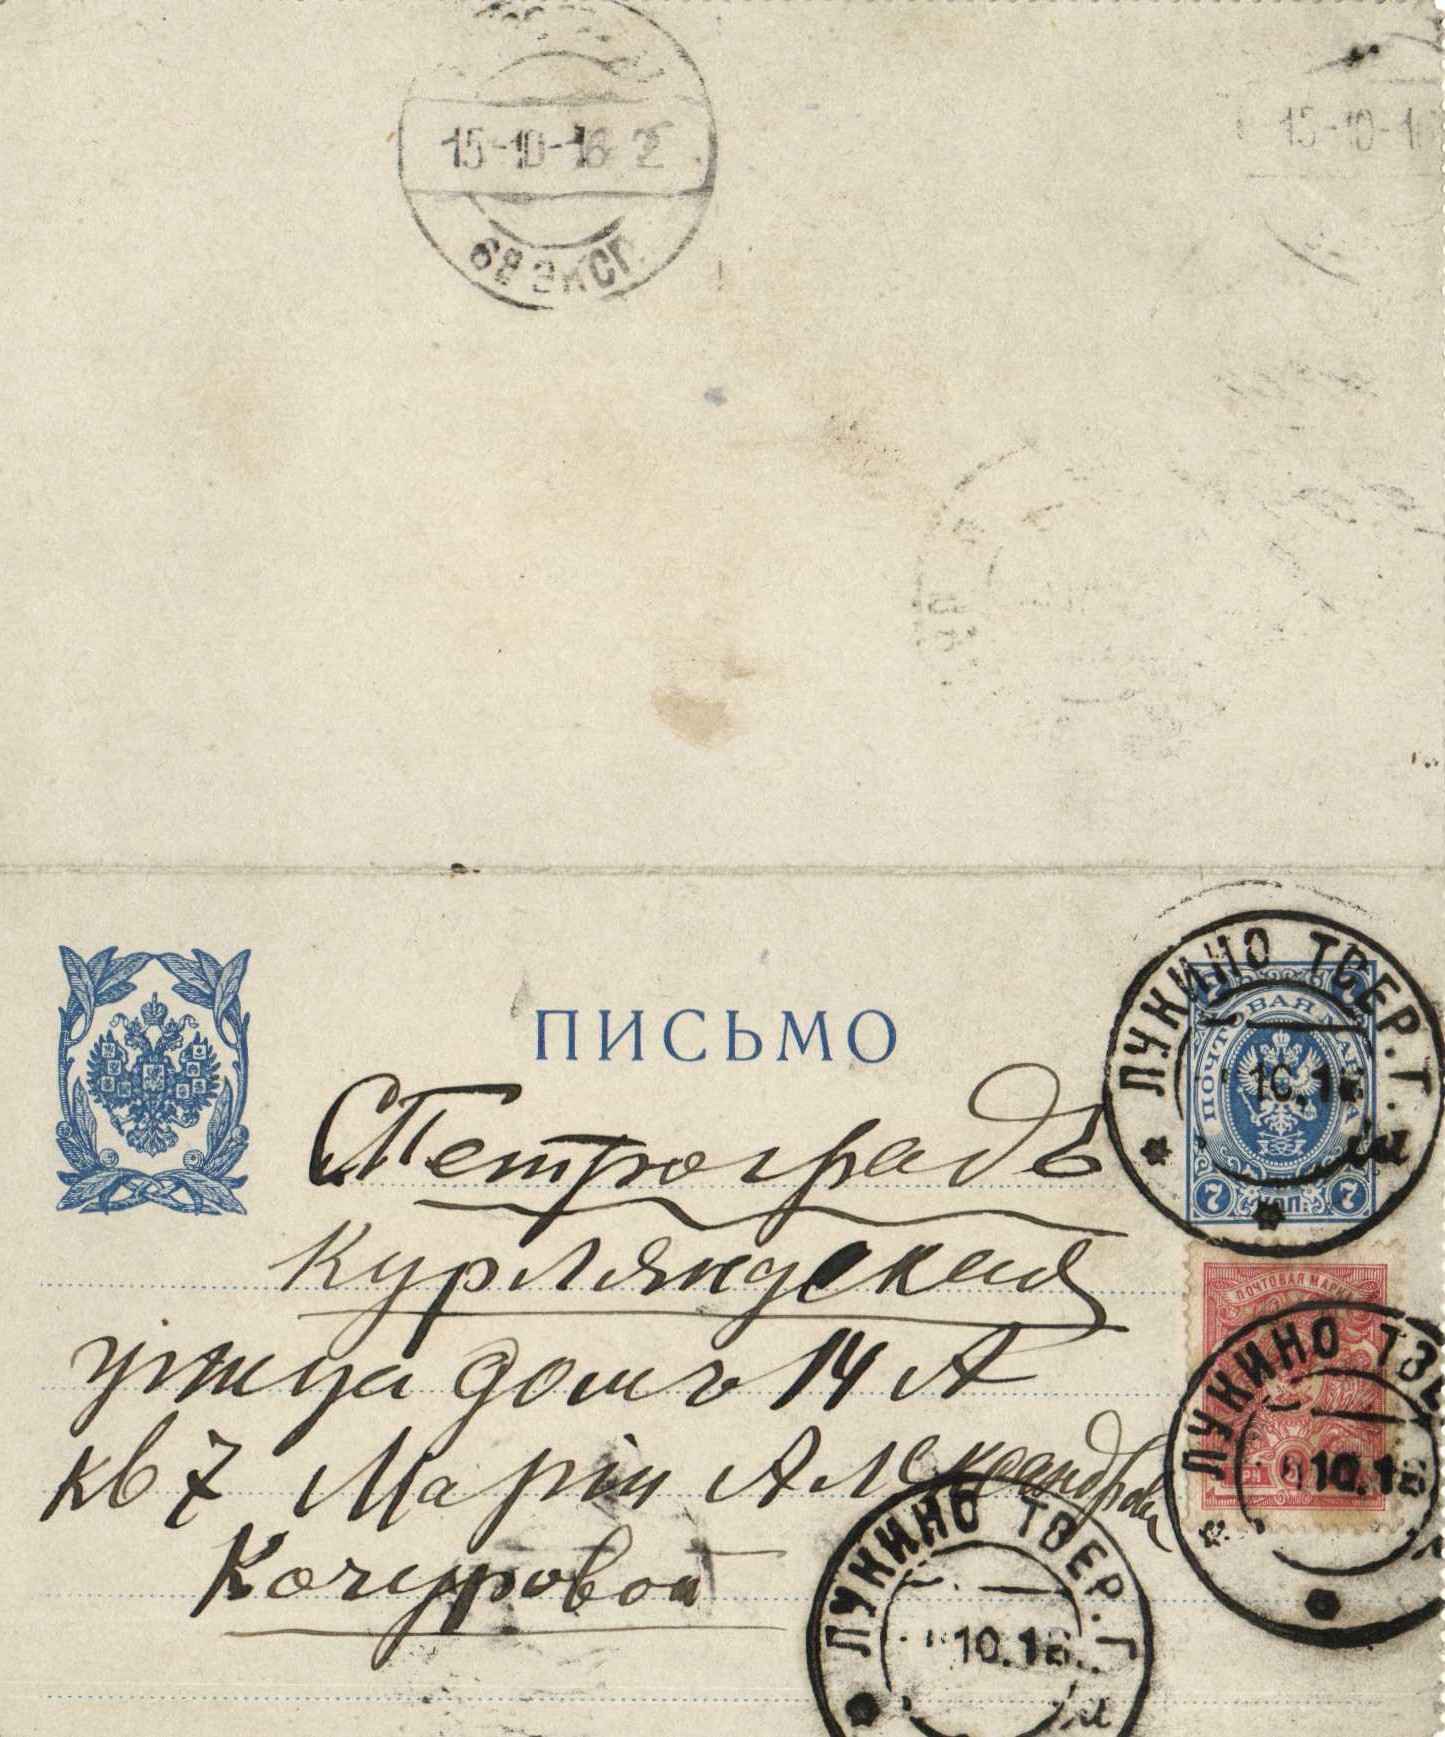 15-10-16 2
15-10-16
68 ЭКСП.
ПИСЬМО
ЛУКИНО ТВЕР. Г.
10.16
ПОЧТОВАЯ МАРКА
7 КОП. 7
Петроградъ
Курляндская
ПОЧТОВАЯ МАРКА
улица домъ 14 А
ЛУКИНО ТВЕ
10.16
кв 7 Маріи Александровн
Кочуровой
ЛУКИНО ТВЕР. Г.
10.16